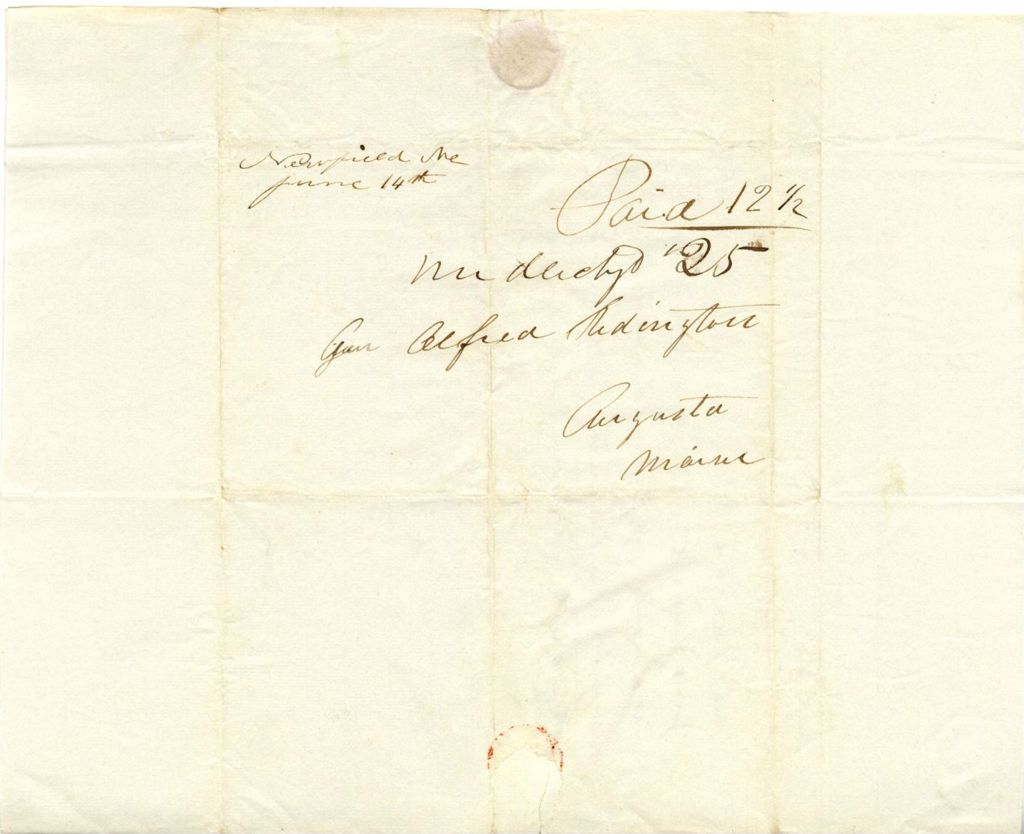 Newfield Me
June 14th
Paid 12 1/2
Underchgd 12 25
Gen Alfred Redington
Augusta
Maine